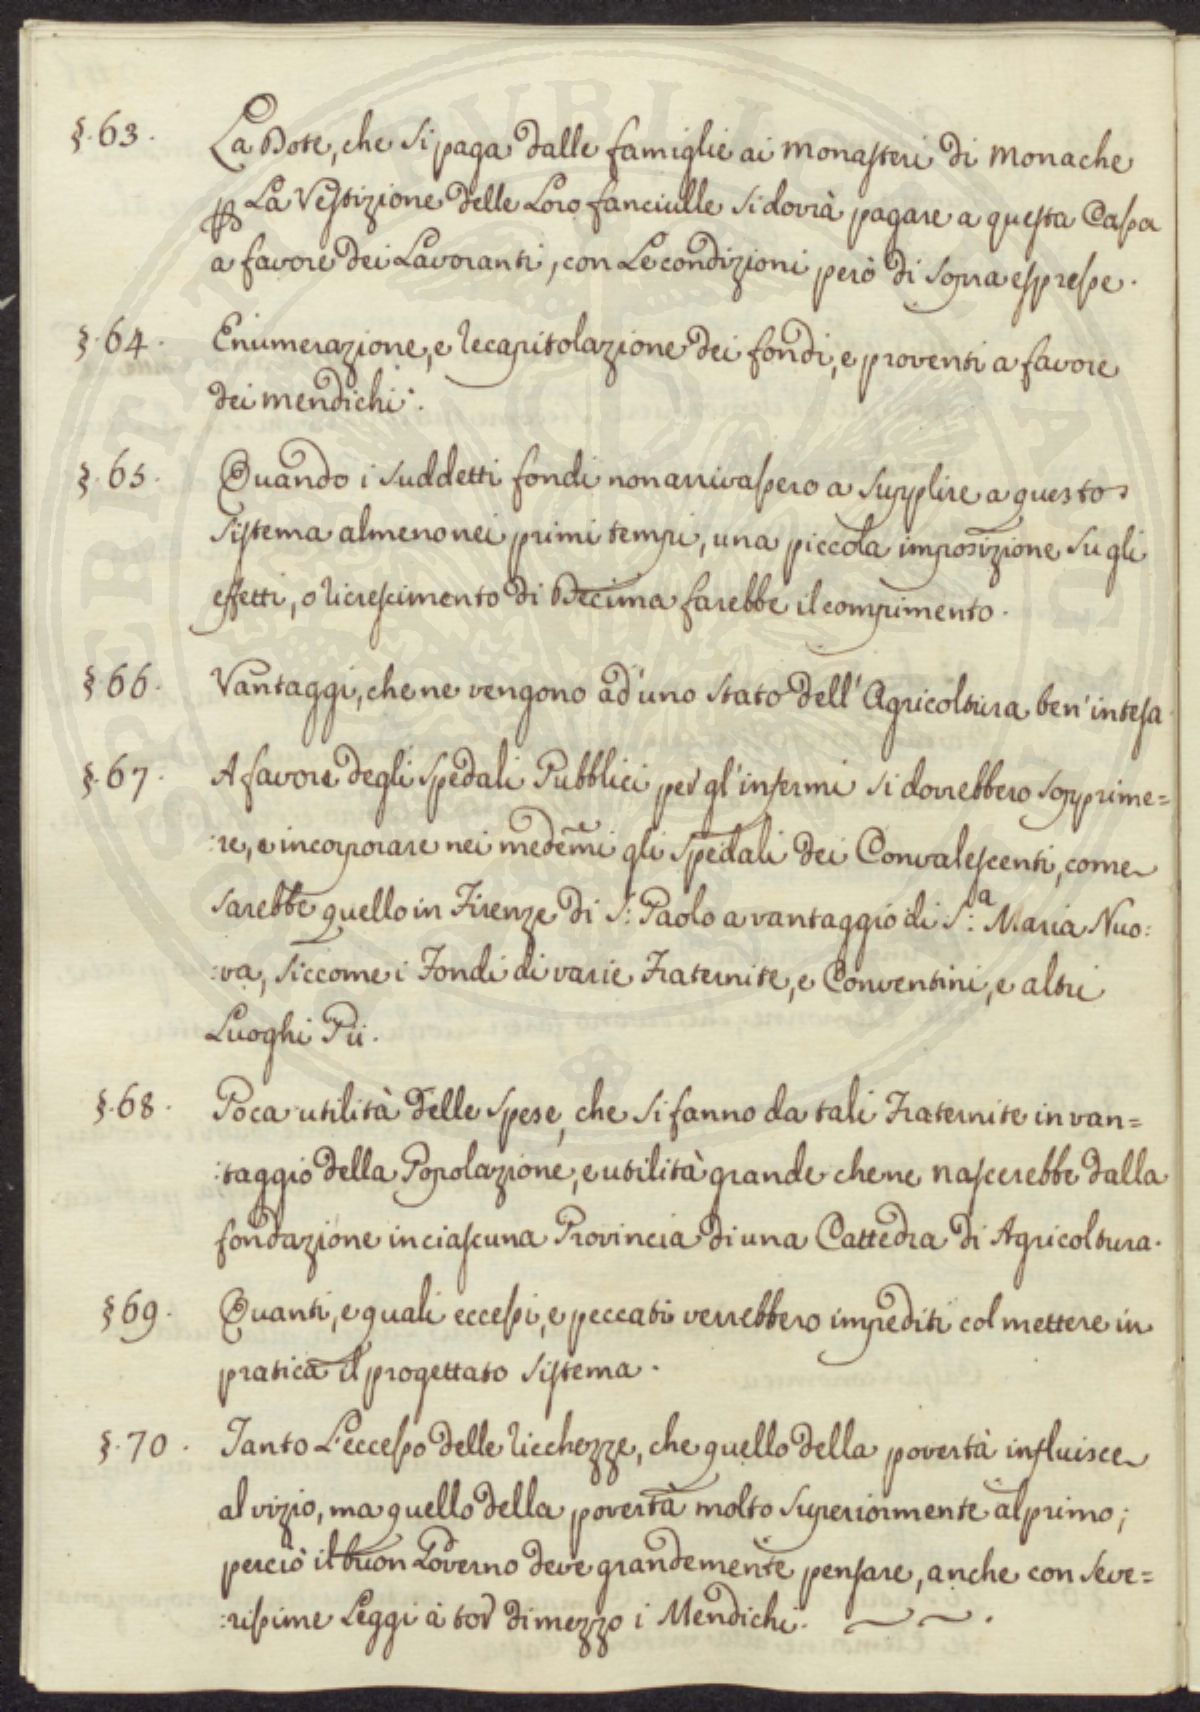 §.63. La Dote, che si paga dalle famiglie ai Monasteri di Monache
p La Vestizione delle Loro fanciulle si dovrà pagare a questa Casa
a favore dei Lavoranti, con Le condizioni però di sopra espresse.
§.64. Enumerazione, e recapitolazione dei fondi, e proventi a favore
dei mendichi.
§.65. Quando i suddetti fondi non arrivassero a supplire a questo
sistema almeno nei primi tempi, una piccola imposizione su gli
effetti, o ricrescimento di Decima farebbe il compimento.
§.66. Vantaggi, che ne vengono ad'uno stato dell'Agricoltura ben'intesa
§.67. A favore degli Spedali Pubblici per gl'infermi si dovrebbero sopprime=
:re, e incorporare nei medemi gli Spedali dei Convalescenti, come
sarebbe quello in Firenze di S: Paolo a vantaggio di S:a Maria Nuo:
:va, siccome i Fondi di varie Fraternite, e Conventini, e altri
Luoghi Pii.
§.68. Poca utilità delle spese, che si fanno da tali Fraternite in van=
:taggio della Popolazione, e utilità grande che ne nascerebbe dalla
fondazione in ciascuna Provincia di una Cattedra di Agricoltura.
§69. Quanti, e quali eccessi, e peccati verrebbero impediti col mettere in
pratica il progettato sistema.
§.70. Tanto L'eccesso delle ricchezze, che quello della povertà influisce
al vizio, ma quello della povertà molto superiormente al primo;
perciò il buon Governo deve grandemente pensare, anche con seve=
:rissime Leggi a tor di mezzo i Mendichi.